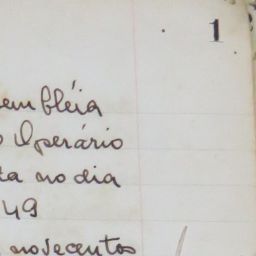 1
embléia
Operário
ta no dia
49
novecentos